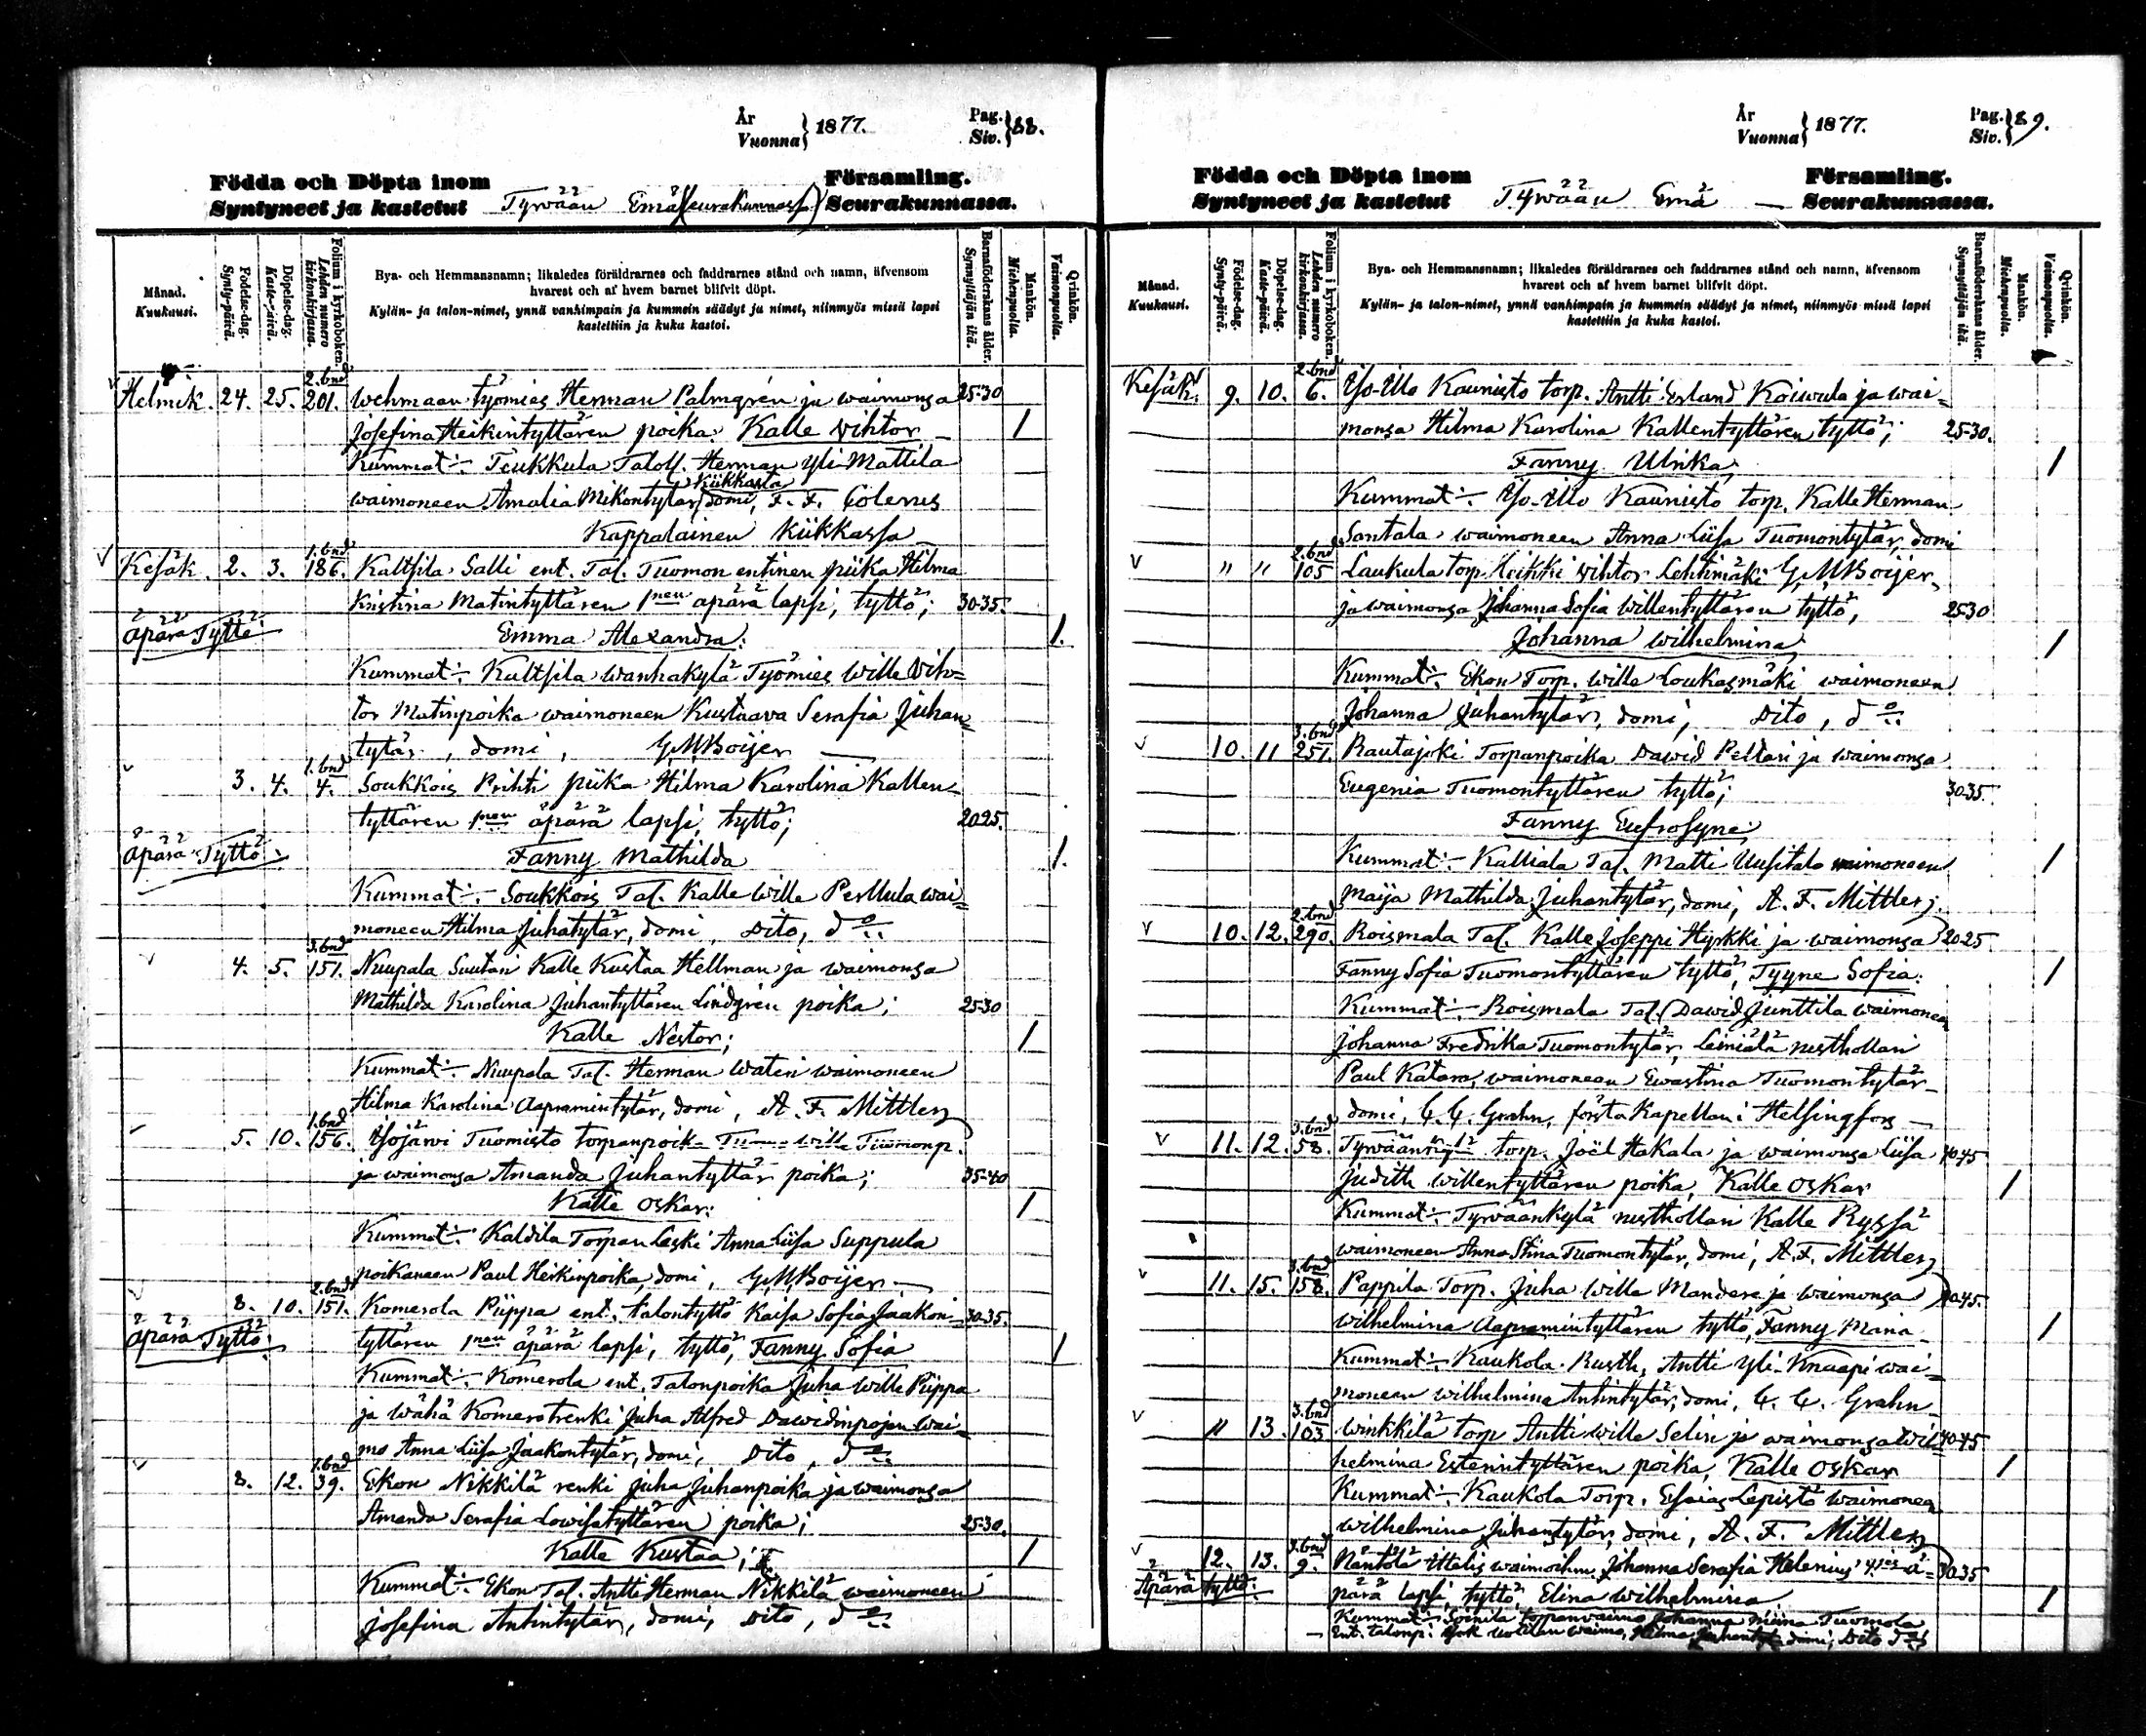 År
Vuonna } 1877.
Pag.
Siv. } 88.
Födda och Döpta inom
Syntyneet ja kastetut Tyrvään Emä(seurakunnassa) Församling.
Seurakunnassa.
Månad.
Kuukausi.
Födelse-dag.
Synty-päivä.
Döpelse-dag.
Kaste-päivä.
Folium i kyrkoboken.
Lehden numero kirkonkirjassa.
Bya- och Hemmansnamn; likaledes föräldrarnes och faddrarnes stånd och namn, äfvensom
hvarest och af hvem barnet blifvit döpt.
Kylän- ja talon-nimet, ynnä vanhimpain ja kummein säädyt ja nimet, niinmyös missä lapsi
kastettiin ja kuka kastoi.
Barnaföderskans ålder.
Synnyttäjän ikä.
Mankön.
Miehenpuolta.
Qvinkön.
Vaimonpuolta.
Helmik. 24. 25. 2.bnd 201. Wehmaan työmies Herman Palmgrén ja waimonsa 25-30
Josefina Heikintyttären poika: Kalle Wihtor 1
Kummat:- Teukkula Taloll. Herman Yli-Mattila
Kiikkasta
waimoneen Amalia Mikontytär, domi, F. F. Colerus
Kappalainen Kiikkassa
Kesäk. 2. 3. 1.bnd 186. Kaltsila Salli ent. Tal. Tuomon entinen piika Hilma
Kristina Matintyttären 1nen äpärä lapsi, tyttö; 30-35.
Äpärä Tyttö
Emma Alexandra. 1.
Kummat:- Kaltsila Wanhakylä Työmies Wille Wih=
tor Matinpoika waimoneen Kustaava Serafia Juhan
tytär, domi, G.M.Boijer
3. 4. 1.bnd 4. Soukkois Prihti piika Hilma Karolina Kallen
tyttären 1nen äpärä lapsi, tyttö; 20-25.
Äpärä Tyttö
Fanny Mathilda 1.
Kummat:- Soukkois Tal. Kalle Wille Perttula wai=
moneen Hilma Juhatytär, domi, Dito, do
4. 5. 3.bnd 151. Nuupala Suutari Kalle Kustaa Hellman ja waimonsa
Mathilda Karolina Juhantyttären Lindgrén poika; 25-30
Kalle Nestor; 1
Kummat:- Nuupala Tal. Herman Wateri waimoneen
Hilma Karolina Aapramintytär, domi, A. F. Mittler
5. 10. 1.bnd 156. Isojärvi Tuomisto torpanpoik. Wille Tuomonp.
ja waimonsa Amanda Juhantyttär poika; 35-40
Kalle Oskar: 1
Kummat:- Kaldila Torpan leski Anna Liisa Suppula
poikaneen Paul Heikinpoika, domi, G.M.Boijer
8. 10. 2.bnd 151. Komerola Piippa ent. talontyttö Kaisa Sofia Jaakon= 30-35.
Äpärä Tyttö:
tyttären 1nen äpärä lapsi, tyttö, Fanny Sofia 1
Kummat:- Komerola ent. Talonpoika Juha Wille Piippa
ja Wähä Komero trenki Juha Alfred Dawidinpojan wai=
mo Anna Liisa Jaakontytär, domi, Dito, do
8. 12. 1.bnd 39. Ekon Nikkilä renki Juha Juhanpoika ja waimonsa
Amanda Serafia Lowisatyttären poika; 25-30.
Kalle Kustaa; 1
Kummat:- Ekon Tal. Antti Herman Nikkilä waimoneen
Josefina Antintytär, domi, Dito, do
År
Vuonna } 1877.
Pag.
Siv. } 89.
Födda och Döpta inom
Syntyneet ja kastetut Tyrvään Emä Församling.
Seurakunnassa.
Månad.
Kuukausi.
Födelse-dag.
Synty-päivä.
Döpelse-dag.
Kaste-päivä.
Folium i kyrkoboken.
Lehden numero kirkonkirjassa.
Bya- och Hemmansnamn; likaledes föräldrarnes och faddrarnes stånd och namn, äfvensom
hvarest och af hvem barnet blifvit döpt.
Kylän- ja talon-nimet, ynnä vanhimpain ja kummein säädyt ja nimet, niinmyös missä lapsi
kastettiin ja kuka kastoi.
Barnaföderskans ålder.
Synnyttäjän ikä.
Mankön.
Miehenpuolta.
Qvinkön.
Vaimonpuolta.
Kesäk. 9. 10. 2.bnd 6. Iso-Illo Kaunisto torp. Antti Erland Koiwula ja wai=
monsa Hilma Karolina Kallentyttären tyttö; 25-30.
Fanny Ulrika; 1
Kummat:- Iso-Illo Kaunisto torp. Kalle Herman
Santala waimoneen Anna Liisa Tuomontytär, domi
" " 2.bnd 105 Laukula torp. Heikki Wihtor Lehtimäki G.M.Boijer
ja waimonsa Johanna Sofia Willentyttären tyttö, 25-30
Johanna Wilhelmina; 1
Kummat:- Ekon Torp. Wille Loukasmäki waimoneen
Johanna Juhantytär, domi, Dito, do
10. 11 3.bnd 251. Rautajoki Torpanpoika Dawid Peltari ja waimonsa
Eugenia Tuomontyttären tyttö; 30-35.
Fanny Eufrosyne
Kummat:- Kalliala Tal. Matti Uusitalo waimoneen 1
Maija Mathilda Juhantytär, domi, A. F. Mittler;
10. 12. 2.bnd 290. Roismala Tal. Kalle Joseppi Hyrkki ja waimonsa 20-25
Fanny Sofia Tuomontyttären tyttö, Tyyne Sofia: 1
Kummat:- Roismala Tal. Dawid Junttila waimoneen
Johanna Fredrika Tuomontytär, Leiniälä rusthollari
Paul Katara, waimoneen Ewastina Tuomontytär
domi, C. C. Grahn, första Kapellan i Helsingfors
11. 12. 3.bnd 58. Tyrväänkylä torp. Joël Hakala ja waimonsa Liisa 40-45
Judith Willentyttären poika, Kalle Oskar 1
Kummat:- Tyrväänkylä rusthollari Kalle Ryssä
waimoneen Anna Stina Tuomontytär, domi, A. F. Mittler
11. 15. 3.bnd 158. Pappila Torp. Juha Wille Mandere ja waimonsa 40-45.
Wilhelmina Aapramintyttären tyttö, Fanny Maria 1
Kummat:- Kaukola Rusth. Antti Yli-Knaapi wai=
moneen Wilhelmina Antintytär, domi, C. C. Grahn
" 13. 3.bnd 103 Winkkilä torp. Antti Wille Selin ja waimonsa Wil= 40-45
helmina Esterintyttären poika, Kalle Oskar 1
Kummat:- Kaukola Torp. Esaias Lepistö waimoneen
Wilhelmina Juhantytär, domi, A. F. Mittler
12. 13. 3.bnd 9. Näntölä Uttelis waimoihm. Johanna Serafia Helenius ä= 30-35
Äpärä tyttö:
pärä lapsi, tyttö, Elina Wilhelmina 1
Kummat:- Soinila torpanwaimo Johanna Tuomola
Ent. talonp. waimo, Hilma domi, Dito do